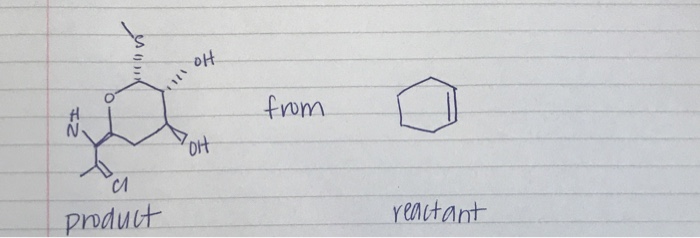 S
OH
O
from
H
N
OH
Cl
product
reactant